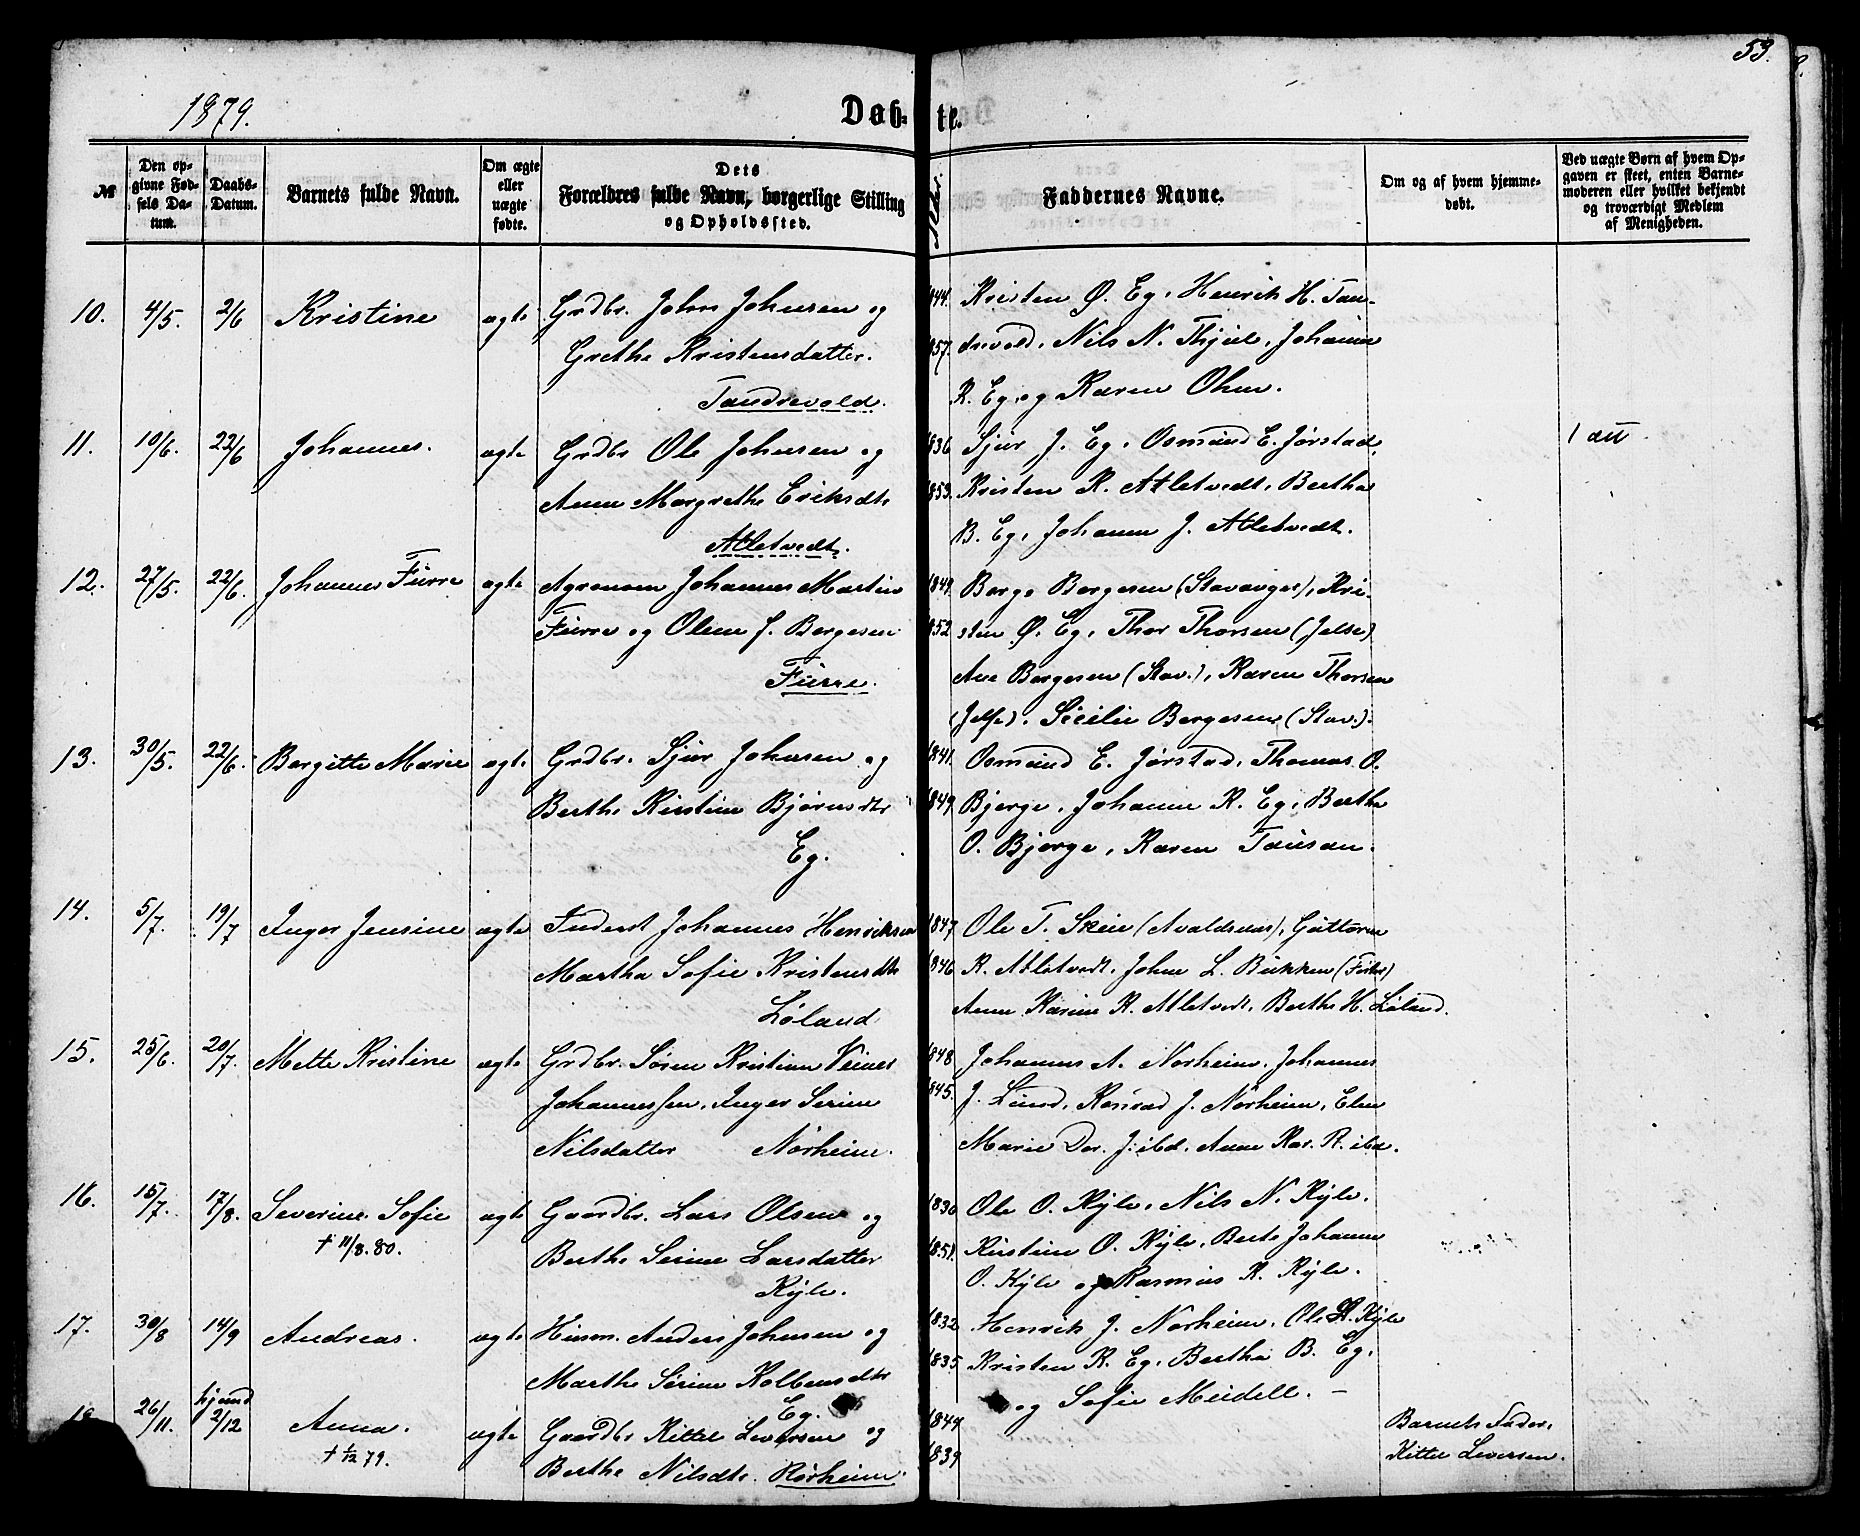 53.
1879.
Døb- te.
№
Den opgivne Fødsels Datum.
Daabs-Datum.
Barnets fulde Navn.
Om ægte eller uægte fødte.
Dets Forældres fulde Navn, borgerlige Stilling og Opholdssted.
Faddernes Navne.
Om og af hvem hjemmedøbt.
Ved uægte Børn af hvem Opgaven er skeet, enten Barnemoderen eller hvilket bekjendt og troværdigt Medlem af Menigheden.
10. 4/5. 2/6 Kristine ægte Grdbr. John Johnsen og 1844. Kristen Ø. Eg, Henrik H. Tan-
Grethe Kristensdatter. 1857. drevold, Nils N. Thjul, Johanne
Tandrevold. K. Eg, og Karen Olsen.
11. 10/6. 22/6 Johannes. ægte Grdbr Ole Johnsen og 1836 Sjur J. Eg, Osmund E. Jørstad, 1 att.
Anne Margrethe Eriksdtr 1853. Kristen K. Atletvedt, Bertha
Atletvedt. B. Eg, Johanne J. Atletvedt.
12. 27/5. 22/6. Johannes Furre ægte Agronom Johannes Martin 1849. Borge Borgesen (Stavanger), Kri-
Furre og Oline f. Borgesen 1852 sten Ø. Eg, Thor Thorsen (Jelse)
Furre. Ane Borgesen (Stav.), Karen Thorsen
(Jelse), Sicilie Borgesen (Stav.).
13. 30/5. 22/6. Borgitte Marie ægte Grdbr. Sjur Johnsen og 1841. Osmund E. Jørstad, Thomas O.
Berthe Kirstine Bjørnsdtr 1849. Bjerge, Johanne K. Eg, Berthe
Eg. O. Bjerge, Karen Tausan.
14. 5/7. 19/7 Inger Jensine ægte Inderst Johannes Henriksen 1847 Ole T. Skeie (Avaldsnes), Guttorm
Martha Sofie Kristensdtr 1846 K. Atletvedt, John L. Bukken
Løland Anne Karine K. Atletvedt, Berthe H. Løland.
15. 25/6. 20/7. Mette Kristine ægte Grdbr. Søren Kristian Veines 1848 Johannes A. Norheim, Johannes
Johannessen, Inger Serine 1845. J. Lund, Konrad J. Norheim, Elen
Nilsdatter Norheim. Marie Dor. J. ibd. Anne Kar. R. ibd.
16. 15/7. 17/8. Severine Sofie ægte Gaardbr. Lars Olsen og 1830 Ole O. Kyle, Nils N. Kyle.
† 11/8. 80. Berthe Serine Larsdatter 1851. Kirstine O. Kyle, Berte Johanne
Kyle. O. Kyle og Rasmus K. Kyle.
17. 30/8 14/9 Andreas. ægte Husm. Anders Johnsen og 1832 Henrik J. Norheim, Ole L. Kyle
Marthe Serine Kolbensdtr 1835. Kristen K. Eg, Bertha B. Eg,
Eg. og Sofie Meidell. -
18 26/11. hjemd 2/12 Anna. ægte Gaardbr Kittel Leversen og 1844 Barnets Fader,
† 1/12 79. Berthe Nilsdtr. Rørheim. 1839 Kittel Leversen.